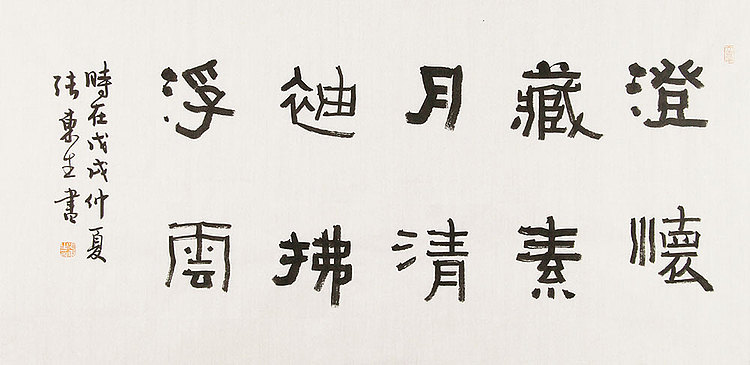 澄懷
藏素
月清
袖拂
浮雲
時在戊戌仲夏
張東生書